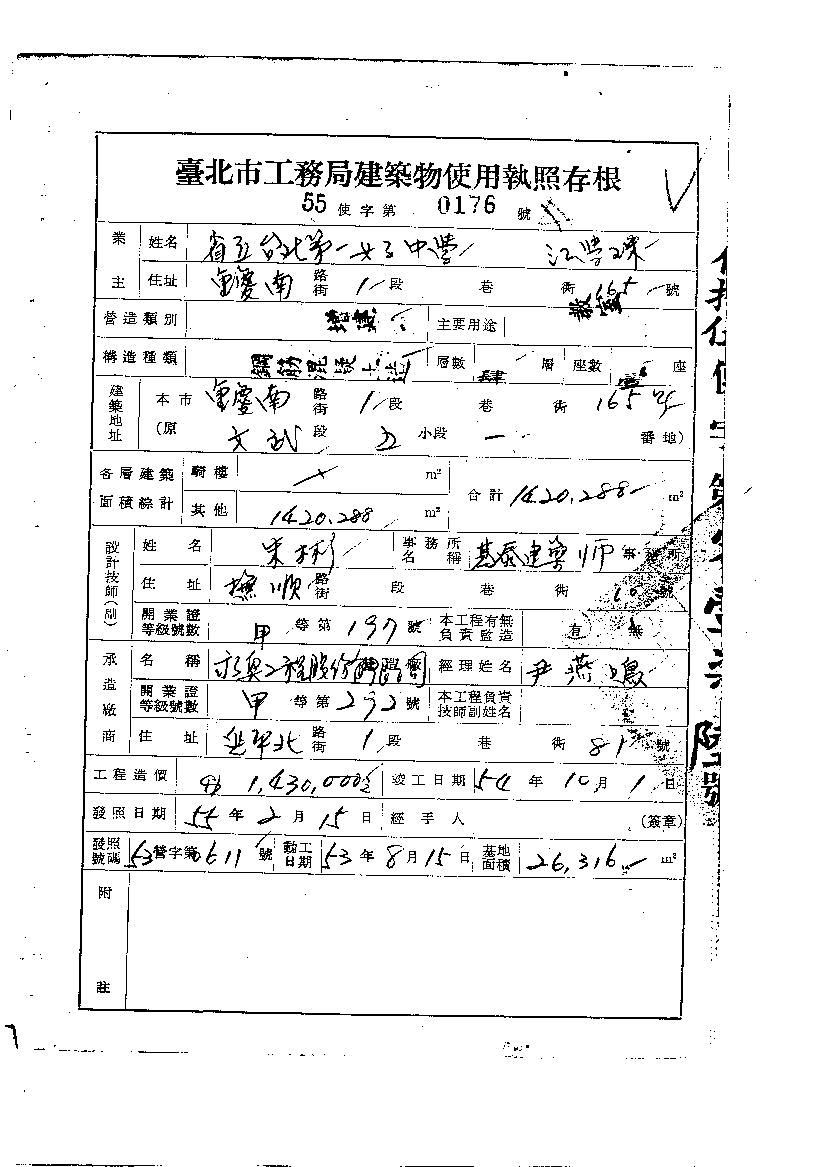 臺北市工務局建築物使用執照存根
55 使字第 0176 號
業主 姓名 省立台北第一女子中學 江學珠
住址 重慶南 路街 1 段 巷 衖 165 號
營造類別 增建 主要用途
構造種類 鋼筋混凝土造 層數 肆 層 座數 壹 座
建築地址 本市 重慶南 路街 1 段 巷 衖 165 號
(原 文武 段 五 小段 一 番地)
各層建築面積綜計 騎樓 m² 合計 1420.288 m²
其他 1420.288 m²
設計技師(副) 姓名 朱彬 事務所名稱 基泰建築師事務所
住址 撫順 路街 段 巷 衖 10 號
開業證等級號數 甲 等第 197 號 本工程有無負責監造 有 無
承造廠商 名稱 工程股份有限公司 經理姓名 尹燕
開業證等級號數 甲 等第 292 號 本工程負責技師副姓名
住址 延平北 路街 1 段 巷 衖 81 號
工程造價 1,430,000 竣工日期 54 年 10 月 1 日
發照日期 55 年 2 月 15 日 經手人 (簽章)
發照號碼 53 營字第 0611 號 動工日期 53 年 8 月 15 日 基地面積 26,316 m²
附註
使字第
陸號